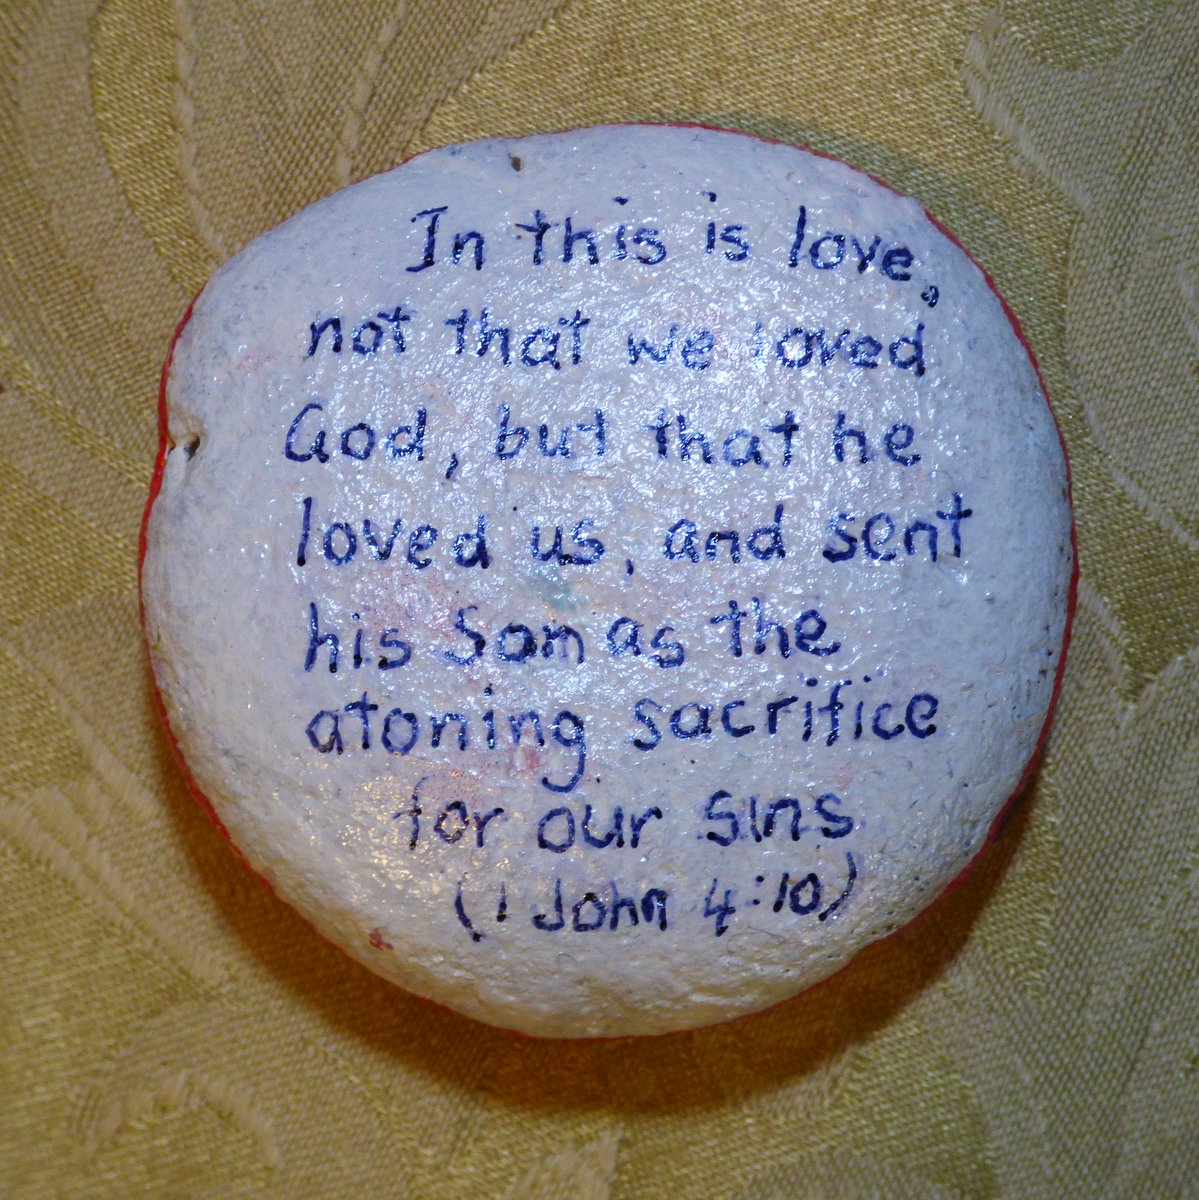 In this is love,
not that we loved
God, but that he
loved us, and sent
his Son as the
atoning sacrifice
for our sins
(1 John 4:10)